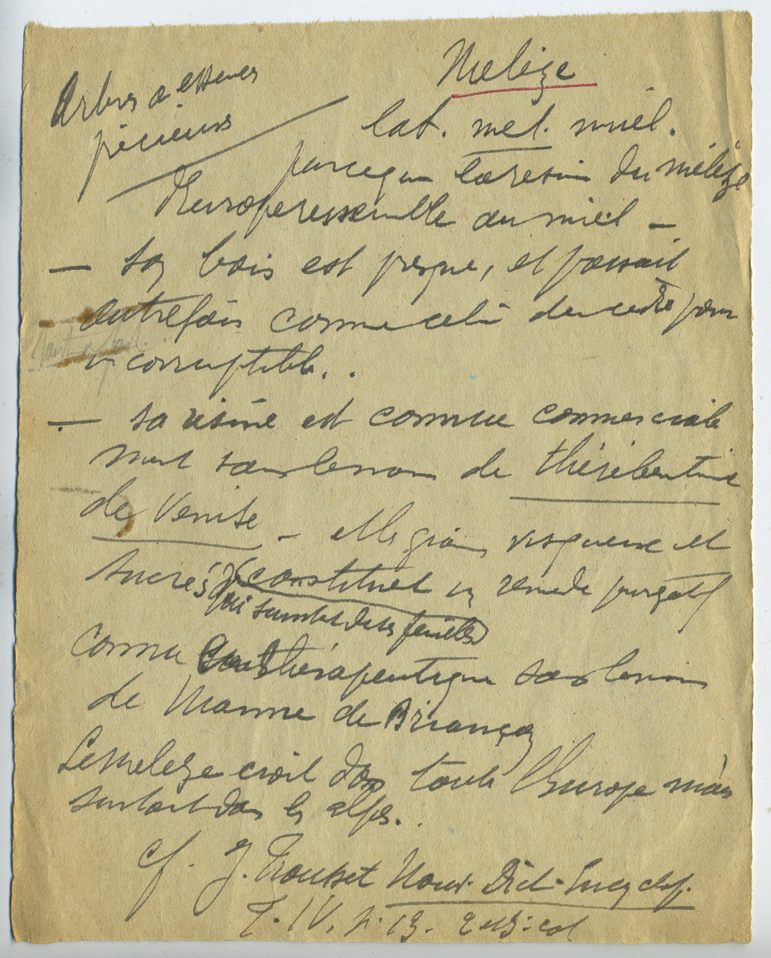 Mélèze
Arbres à essences
précieuses
lat. mel. miel.
parceque la résine du mélèze
d'Europe ressemble au miel —
— son bois est presque, et passait
autrefois comme celui du cèdre pour
incorruptible..
— sa résine est connue commerciale
ment sous le nom de thérébentine
de Venise — Les grains visqueux et
sucrés constituent un remède purgatif
qui suintent de ses feuilles
connu en thérapeutique sous le nom
de Manne de Briançon
Le mélèze croît dans toute l'Europe mais
surtout dans les alpes.
cf. J. Trousset Nouv. Dict. Encyclop.
T. IV. p. 13. 2e et 3e col